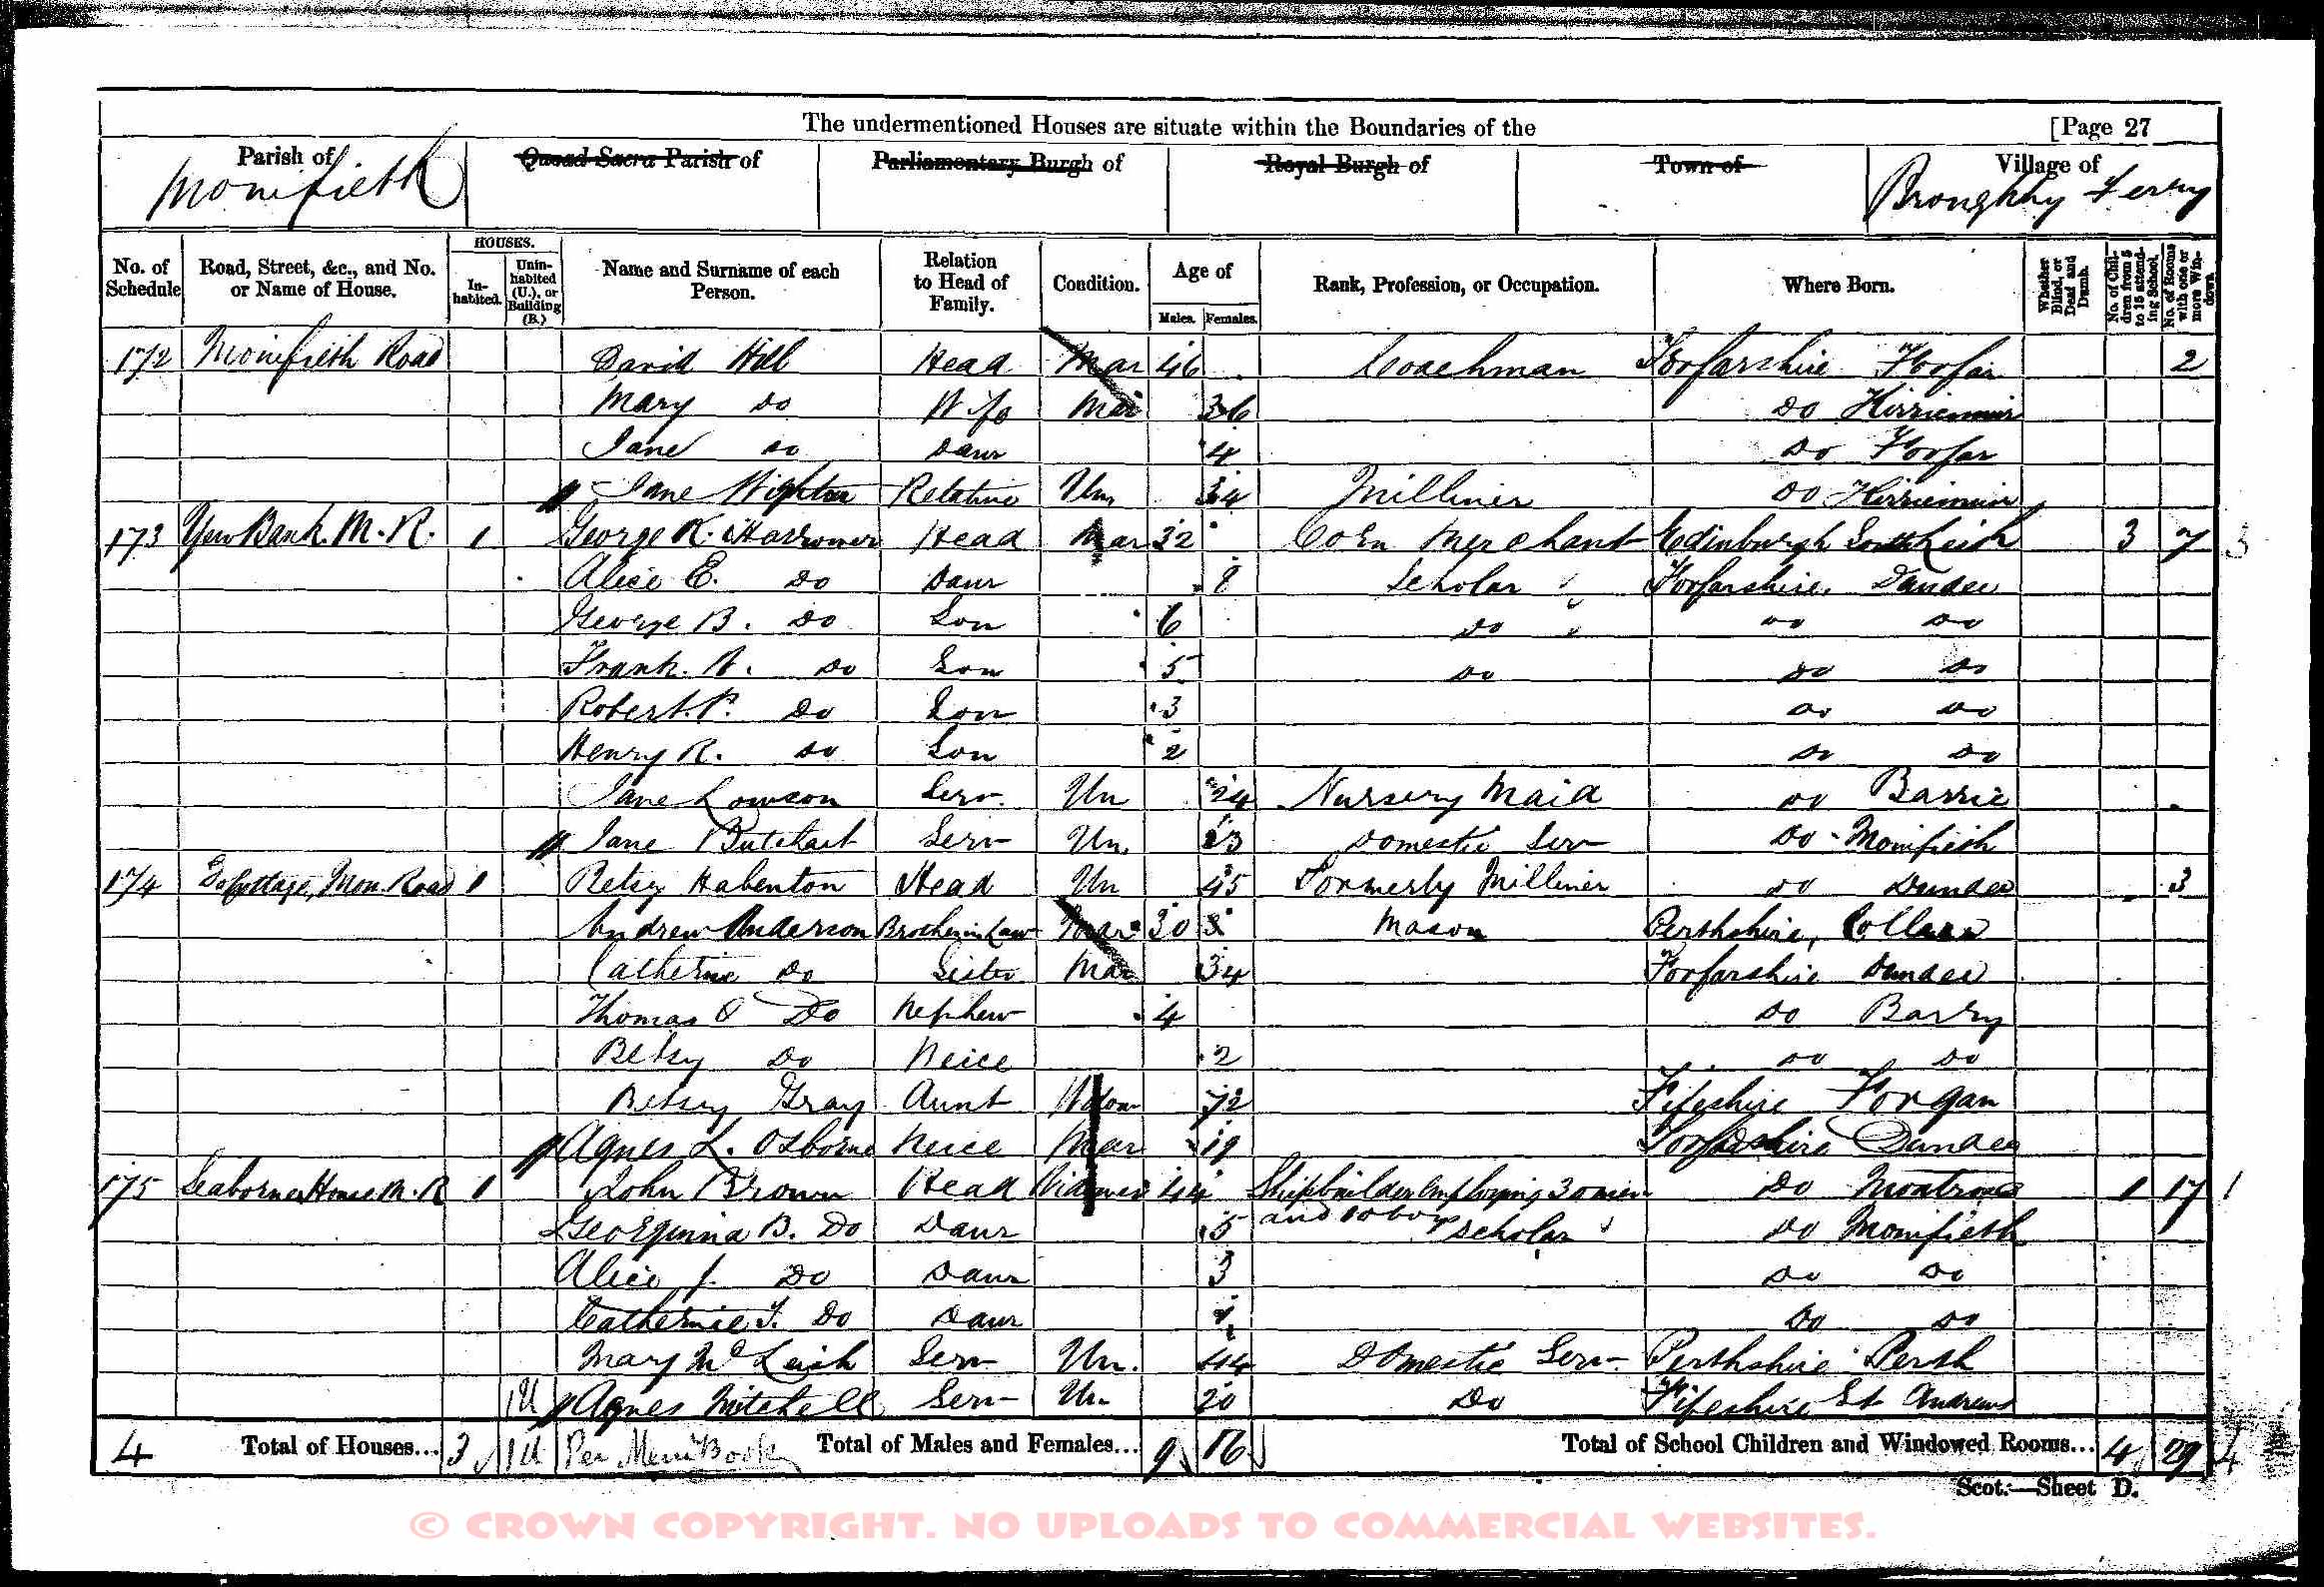 The undermentioned Houses are situate within the Boundaries of the [Page 27
Parish of Quoad Sacra Parish of Parliamentary Burgh of Royal Burgh of Town of Village of
Monifieth Broughty Ferry
No. of Schedule Road, Street, &c., and No. or Name of House. HOUSES. In-habited. Unin-habited (U.), or Building (B.) Name and Surname of each Person. Relation to Head of Family. Condition. Age of Males. Females. Rank, Profession, or Occupation. Where Born. Whether Blind, or Deaf and Dumb. No. of Chil-dren from 5 to 15 attend-ing School. No. of Rooms with one or more Win-dows.
172 Monifieth Road David Hill Head Mar 46 Coachman Forfarshire Forfar 2
Mary Do Wife Mar 36 Do Kirriemuir
Jane Do Daur 4 Do Forfar
Jane Relative Un 34 Milliner Do Kirriemuir
173 Yew Bank. M. R. 1 George R. Harrower Head Mar 32 Corn Merchant Edinburgh South Leith 3 7 3
Alice E. Do Daur 8 Scholar Forfarshire. Dundee
George B. Do Son 6 Do Do Do
Frank. Do Son 5 Do Do Do
Robert. P. Do Son 3 Do Do
Henry R. Do Son 2 Do Do
Jane Lowson Serv. Un 24 Nursery Maid Do Barrie
Jane Butchart Serv Un. 23 Domestic Serv Do Monifieth
174 Cottage, Mon. Road 1 Betsy Habenton Head Un 45 Formerly Milliner Do Dundee 3
Andrew Anderson Brother in Law Mar 30 Mason Perthshire, Collace
Catherine Do Sister Mar 34 Forfarshire Dundee
Thomas O Do Nephew 4 Do Barry
Betsy Do Neice 2 Do Do
Betsy Gray Aunt Widow 72 Fifeshire Forgan
Agnes L. Osborne Neice Mar 19 Forfarshire Dundee
175 Seaborne House M. R 1 John Brown Head Widower 44 Shipbuilder Employing 30 men Do Montrose 1 17 1
and 10 boys
Georginna B. Do Daur 5 Scholar Do Monifieth
Alice J. Do Daur 3 Do Do
Catherine Do Daur Do Do
Mary McLeish Serv Un. 44 Domestic Serv. Perthshire Perth
1U Agnes Mitchell Serv Un. 20 Do Fifeshire St Andrews
4 Total of Houses... 3 1U Per Book Total of Males and Females... 9 16 Total of School Children and Windowed Rooms... 4 29 4
Scot.—Sheet D.
© CROWN COPYRIGHT. NO UPLOADS TO COMMERCIAL WEBSITES.